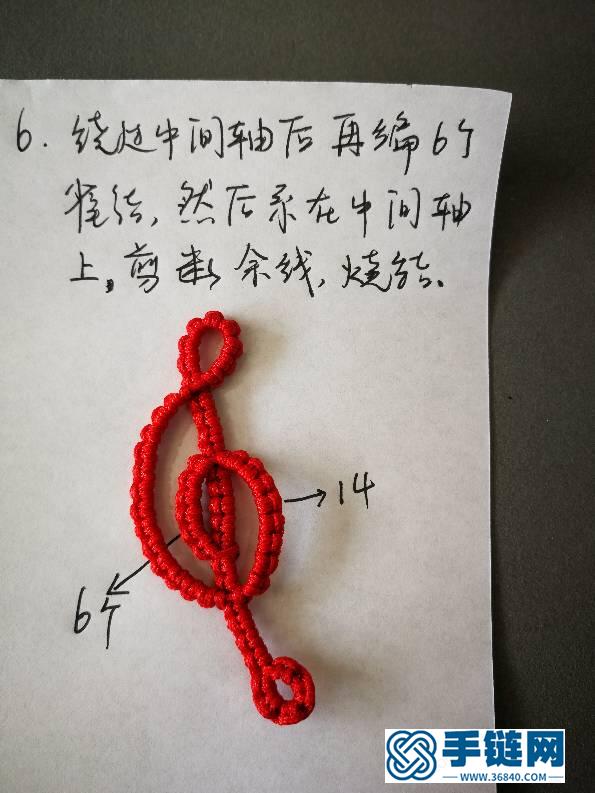 6. 绕过中间轴后再编6个
雀结，然后系在中间轴
上。剪断余线，烧结。
14
6个
手链网
WWW.36840.COM